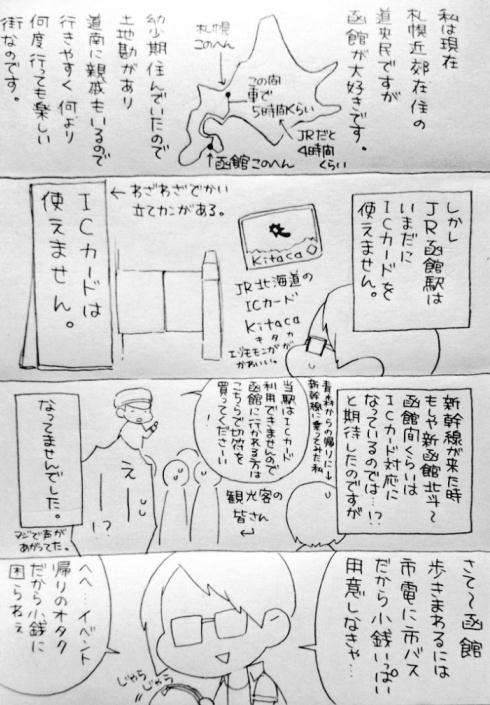 私は現在
札幌近郊在住の
道央民ですが
函館が大好きです。
札幌
このへん
この間
車で
5時間くらい
JRだと
4時間
くらい
函館このへん
幼少期住んでいたので
土地勘があり
道南に親戚もいるので
行きやすく何より
何度行っても楽しい
街なのです。
しかし
JR函館駅は
いまだに
ICカードを
使えません。
Kitaca
JR北海道の
ICカード
Kitaca
キタカ
エゾモモンガが
かわいい。
←わざわざでかい
立てカンがある。
ICカードは
使えません。
新幹線が来た時
もしや新函館北斗〜
函館間くらいは
ICカード対応に
なっているのでは…!?
と期待したのですが
青森からの帰りに
新幹線に乗ってみた私
当駅はICカード
利用できませんので
函館に行かれる方は
こちらで切符を
買ってくださーい!
観光客の
皆さん
えーーー
!?
なってませんでした。
マジで声が
あがってた。
さて〜函館
歩きまわるには
市電に市バス
だから小銭いっぱい
用意しなきゃ…
じゃら
じゃら
へへ…イベント
帰りのオタク
だから小銭に
困らねぇ